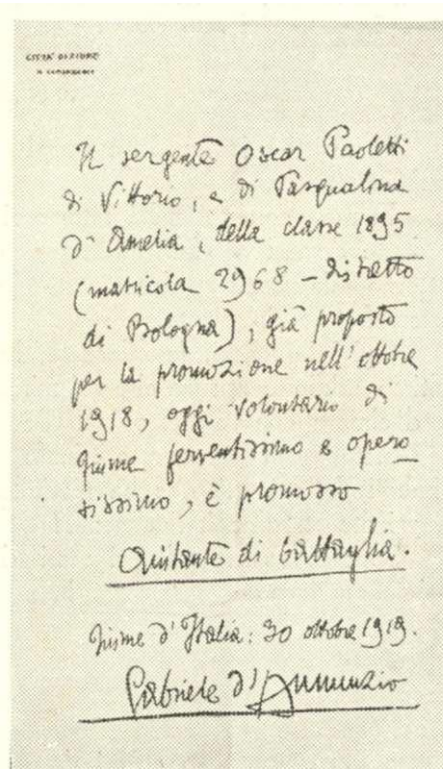 CITTÀ DI FIUME
IL COMANDANTE
Il sergente Oscar Paoletti
di Vittorio, e di Pasqualina
d'Amelia, della classe 1895
(matricola 2968 – distretto
di Bologna), già proposto
per la promozione nell'ottobre
1918, oggi volontario di
Fiume ferventissimo e opero
sissimo, è promosso
Aiutante di battaglia.
Fiume d'Italia: 30 ottobre 1919.
Gabriele d'Annunzio